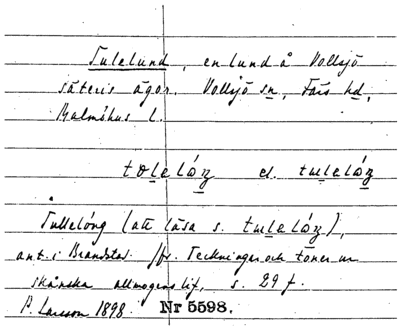 Tulelund, en lund å Vollsjö
säteris ägor. Vollsjö sn, Färs hd,
Malmöhus l.
toleláŋ el. tuleláŋ
Tullelång (att läsa s. tuleláŋ),
ant. i Brandstad. Jfr. Teckningar och toner ur
skånska allmogens lif, s. 29 f.
P. Larsson 1898. Nr 5598.